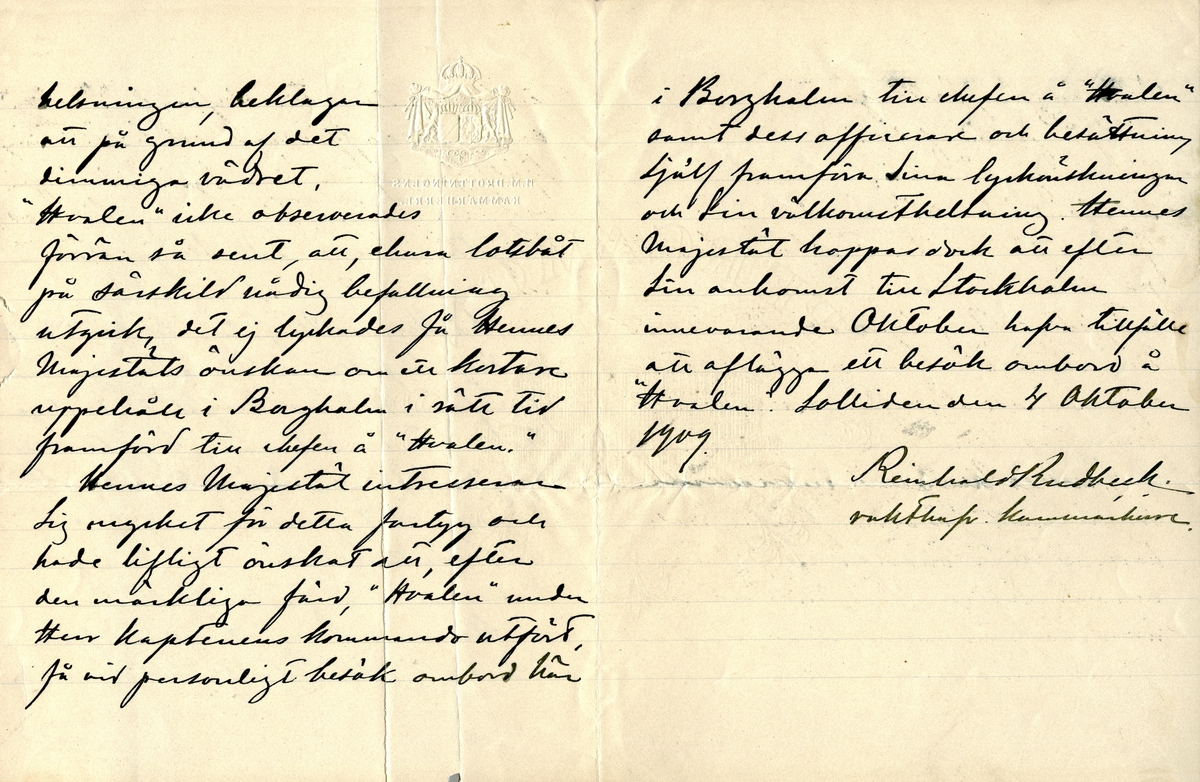 helsningen, beklagar
att på grund af det
dimmiga vädret,
"Hvalen" icke observerades
förrän så sent, att, ehuru lotsbåt
på särskild nådig befallning
utgick, det ej lyckades få Hennes
Majestäts önskan om ett kortare
uppehåll i Borgholm i rätt tid
framförd till chefen å "Hvalen."
Hennes Majestät intresserar
Sig mycket för detta fartyg och
hade lifligt önskat att, efter
den märkliga färd, "Hvalen" under
Herr Kaptenens kommando utfört,
få vid personligt besök ombord här
i Borgholm till chefen å "Hvalen"
samt dess officerare och besättning
Själf framföra Sina lyckönskningar
och Sin välkomsthelsning. Hennes
Majestät hoppas dock att efter
Sin ankomst till Stockholm
innevarande Oktober hafva tillfälle
att aflägga ett besök ombord å
"Hvalen". Solliden den 4 Oktober
1909.
Reinhold Rudbeck.
vakthafv. Kammarherre.
H.M. DROTTNINGENS
KAMMARHERRE